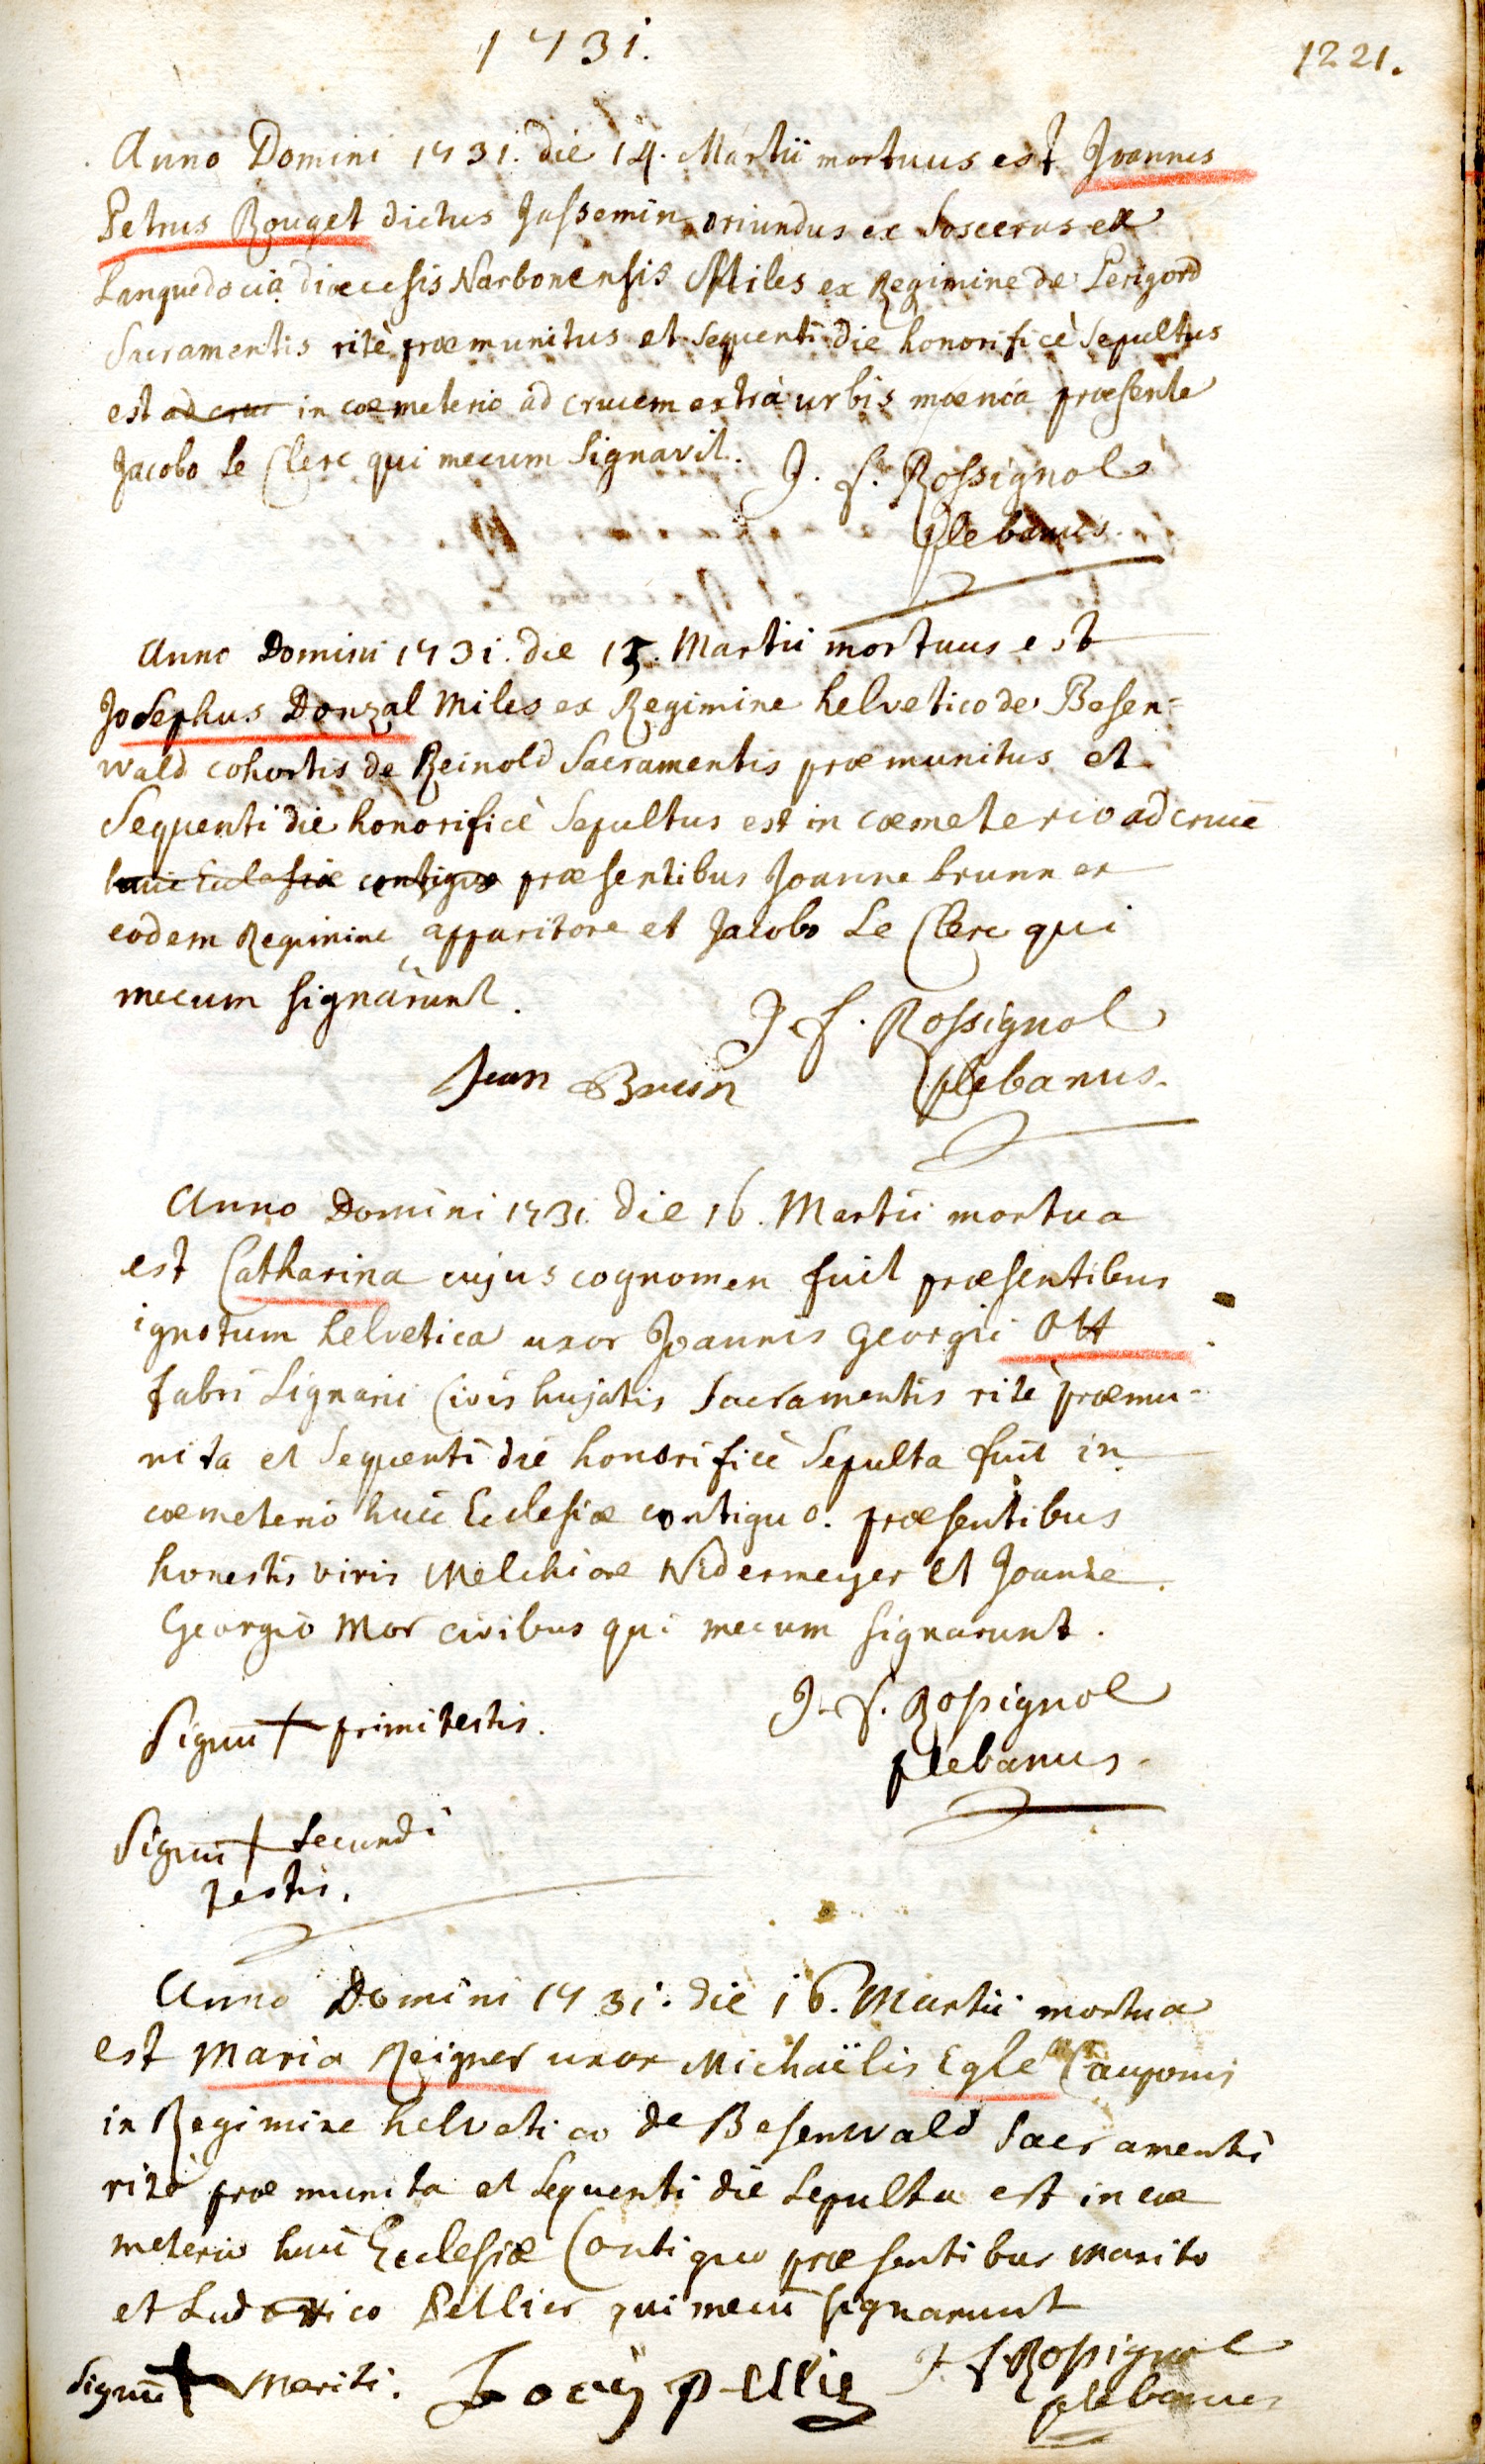 1731.
1221.
Anno Domini 1731. die 14. Martii mortuus est Joannes
Petrus Rouget dictus Jassemin oriundus ex Sosceras ex
Languedocia dioecesis Narbonensis Miles ex Regimine de Perigord
Sacramentis ritè præmunitus et sequenti die honorificè sepultus
est ad cruc in coemeterio ad crucem extrà urbis moenia præsente
Jacobo Le Clerc qui mecum signavit.
J. f. Rossignol
plebanus.
Anno Domini 1731. die 15. Martii mortuus est
Josephus Donzal Miles ex Regimine helvetico de Besen=
wald cohortis de Reinold Sacramentis præmunitus et
sequenti die honorificè sepultus est in coemeterio ad crucē
huic Ecclesiæ contiguo præsentibus Joanne brunn ex
eodem Regimine apparitore et Jacobo Le Clerc qui
mecum signârunt.
J. f. Rossignol
Jean Brun
plebanus.
Anno Domini 1731. die 16. Martii mortua
est Catharina cujus cognomen fuit præsentibus
ignotum helvetica uxor Joannis Georgii Ott
fabri Lignarii Civis hujatis Sacramentis ritè præmu-
nita et sequenti die honorificè sepulta fuit in
coemeterio huic Ecclesiæ contiguo. præsentibus
honestis viris Melchiore Nidermeyer et Joanne
Georgio Mor civibus qui mecum signarunt.
J. f. Rossignol
Signū + primi testis.
plebanus.
Signū + secundi
testis.
Anno Domini 1731. die 16. Martii mortua
est Maria Reigner uxor Michaëlis Egle Cauponis
in Regimine helvetico de Besenwald Sacramentis
ritè præmunita et sequenti die sepulta est in coe
meterio huic Ecclesiæ Contiguo præsentibus marito
et Ludovico Pellier qui mecū signarunt
Signū + Mariti.
J. f. Rossignol
plebanus